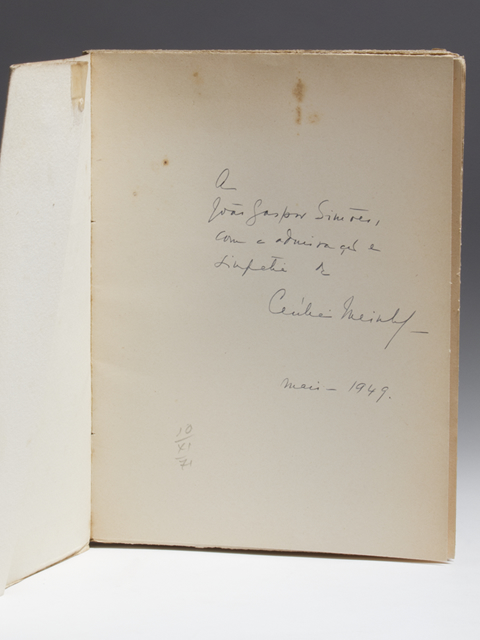 A
João Gaspar Simões,
com a admiração e
simpatia de
Cecília Meireles
maio - 1949.
10